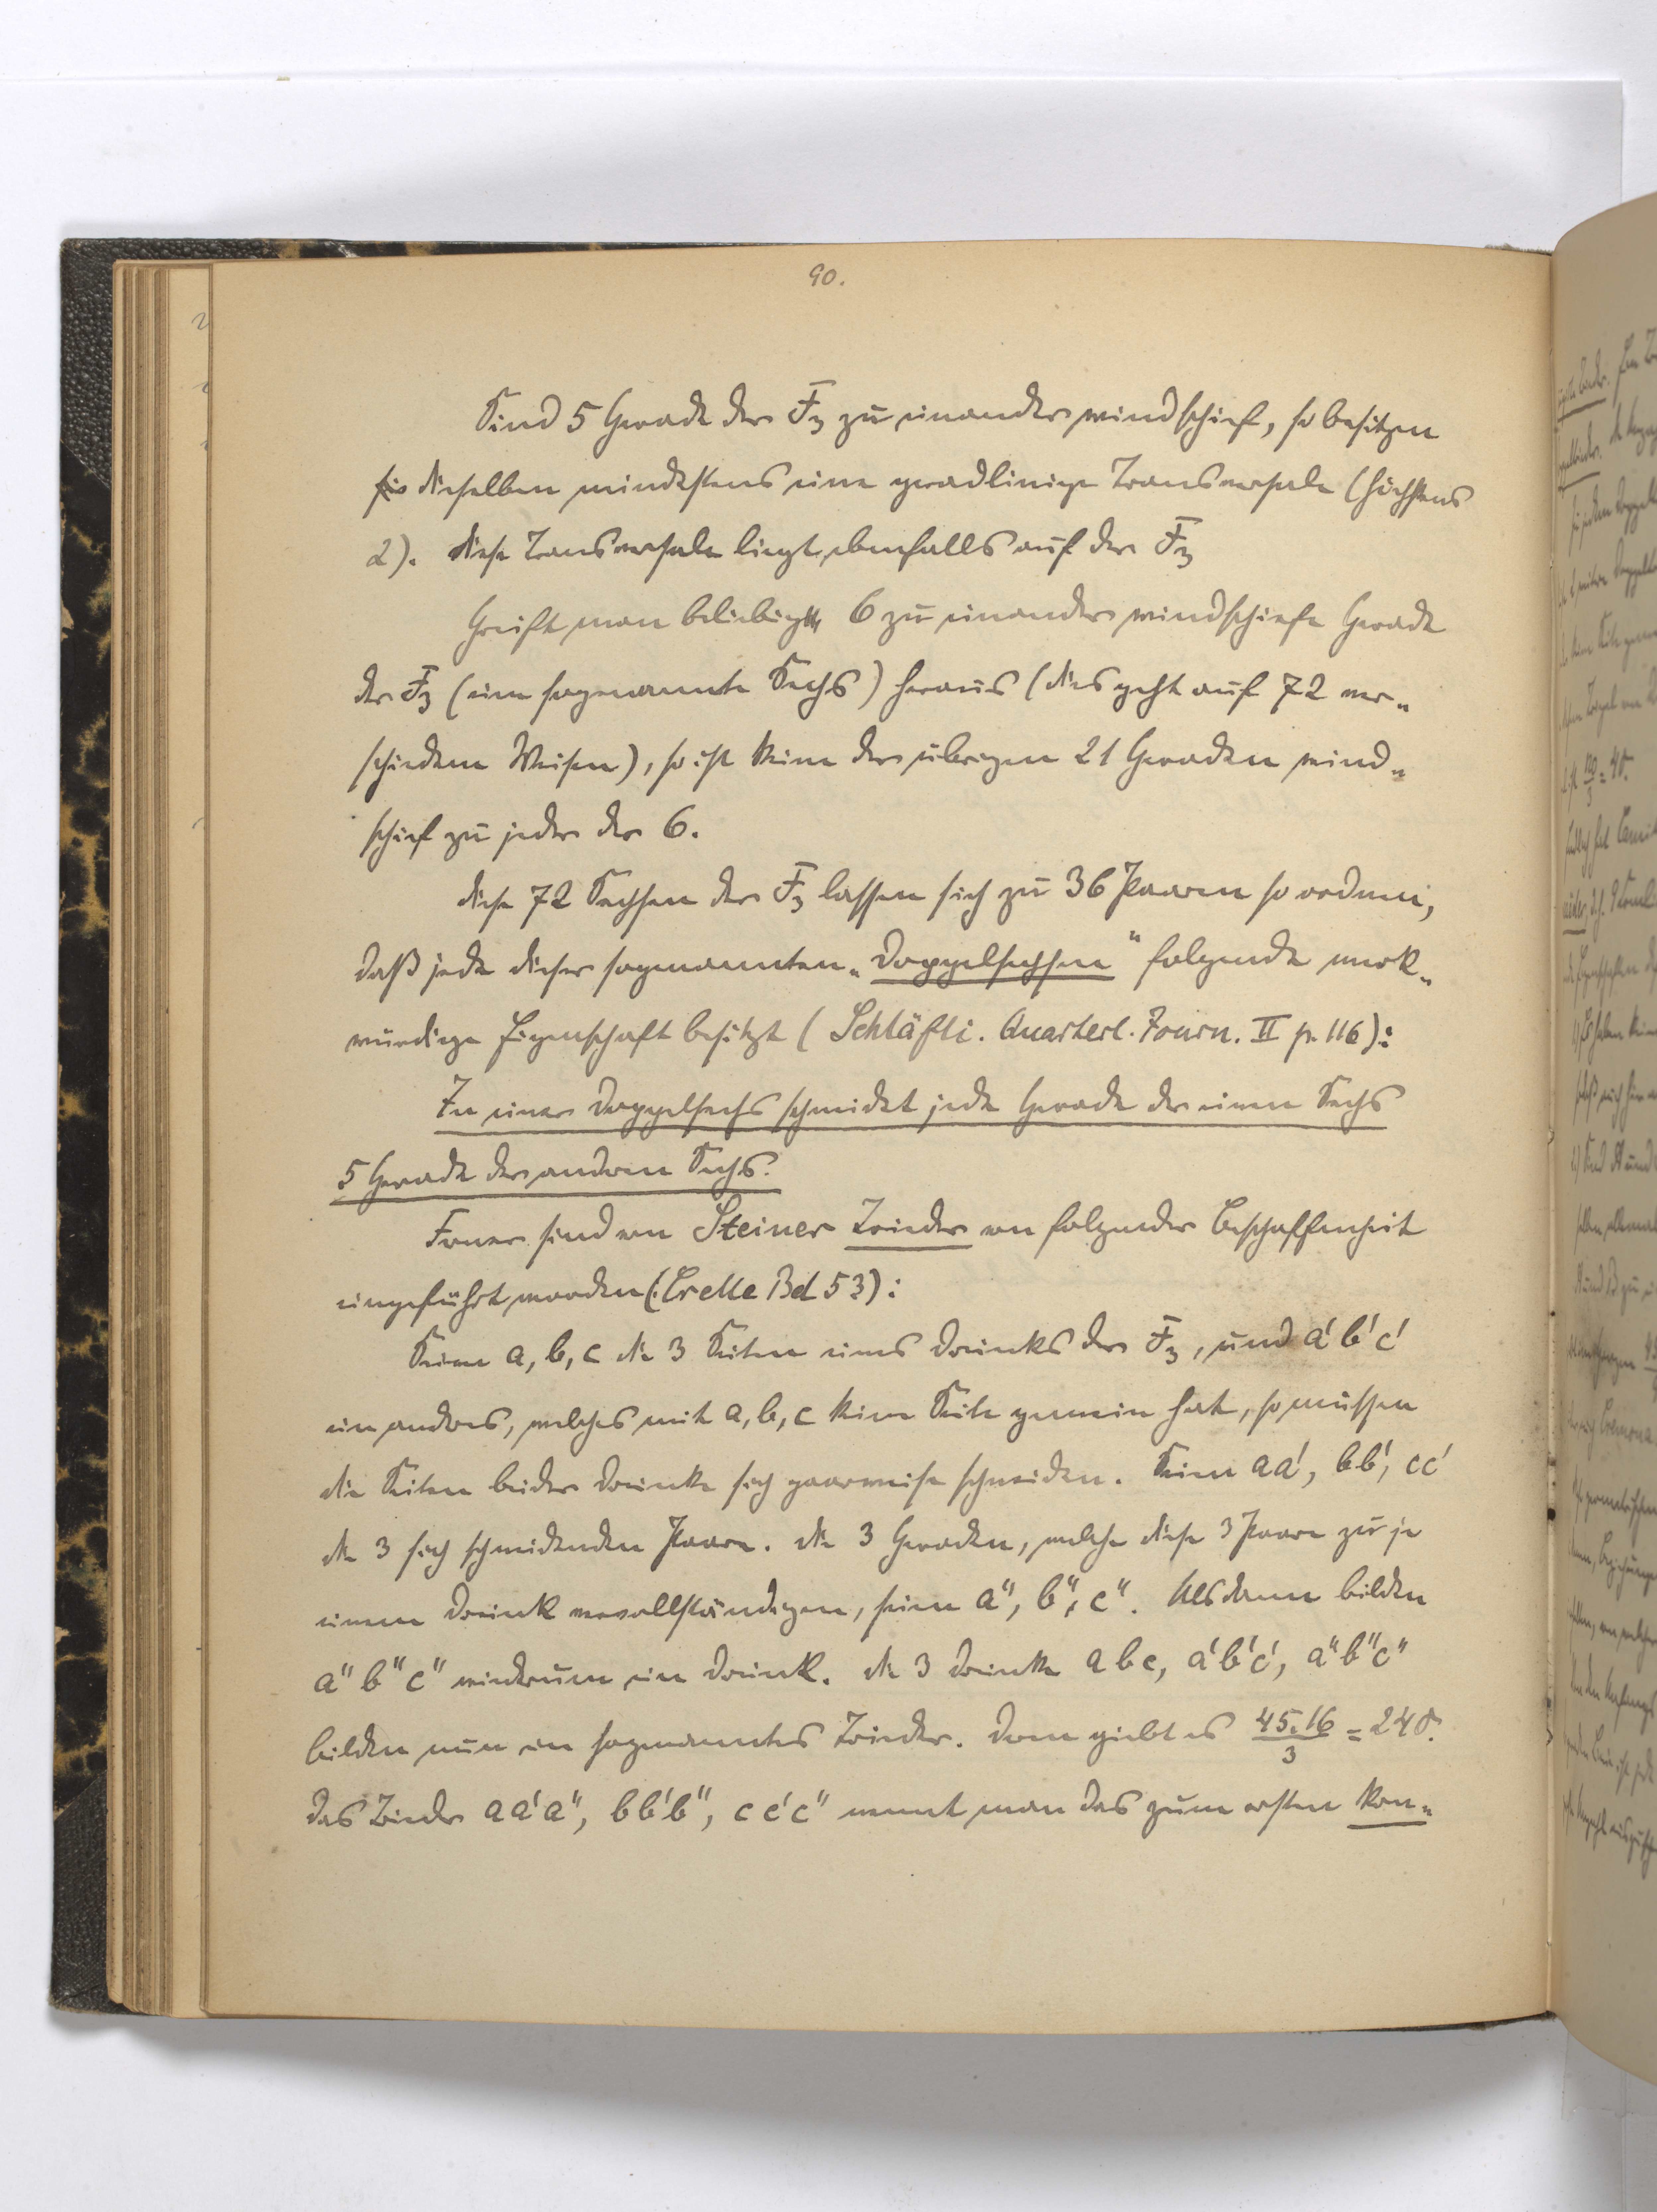 90.
Sind 5 Gerade der F₃ zu einander windschief, so besitzen
dieselben mindestens eine geradlinige Transversale (höchstens
2). Diese Transversale liegt ebenfalls auf der F₃
Greift man beliebige 6 zu einander windschiefe Gerade
der F₃ (eine sogenannte Sechs) heraus (dies geht auf 72 ver-
schiedene Weisen), so ist keine der übrigen 21 Geraden wind-
schief zu jeder der 6.
Diese 72 Sechsen der F₃ lassen sich zu 36 Paaren so ordnen,
daß jede dieser sogenannten „Doppelsechsen“ folgende merk-
würdige Eigenschaft besitzt (Schläfli. Quarterl. Journ. II p. 116):
In einer Doppelsechs schneidet jede Gerade der einen Sechs
5 Gerade der andren Sechs.
Ferner sind von Steiner Trieder von folgender Beschaffenheit
eingeführt worden (: Crelle Bd 53):
Seien a, b, c die 3 Seiten eines Dreiecks der F₃, und a' b' c'
ein andres, welches mit a, b, c keine Seite gemein hat, so müssen
die Seiten beider Dreiecke sich paarweise schneiden. Seien aa', bb', cc'
die 3 sich schneidenden Paare. Die 3 Geraden, welche diese 3 Paare zu je
einem Dreieck vervollständigen, seien a", b", c". Alsdann bilden
a" b" c" wiederum ein Dreieck. Die 3 Dreiecke abc, a'b'c', a"b"c"
bilden nun ein sogenanntes Trieder. Deren giebt es 45.16/3 = 240.
Das Trieder aa'a", bb'b", cc'c" nennt man das zum ersten kon-